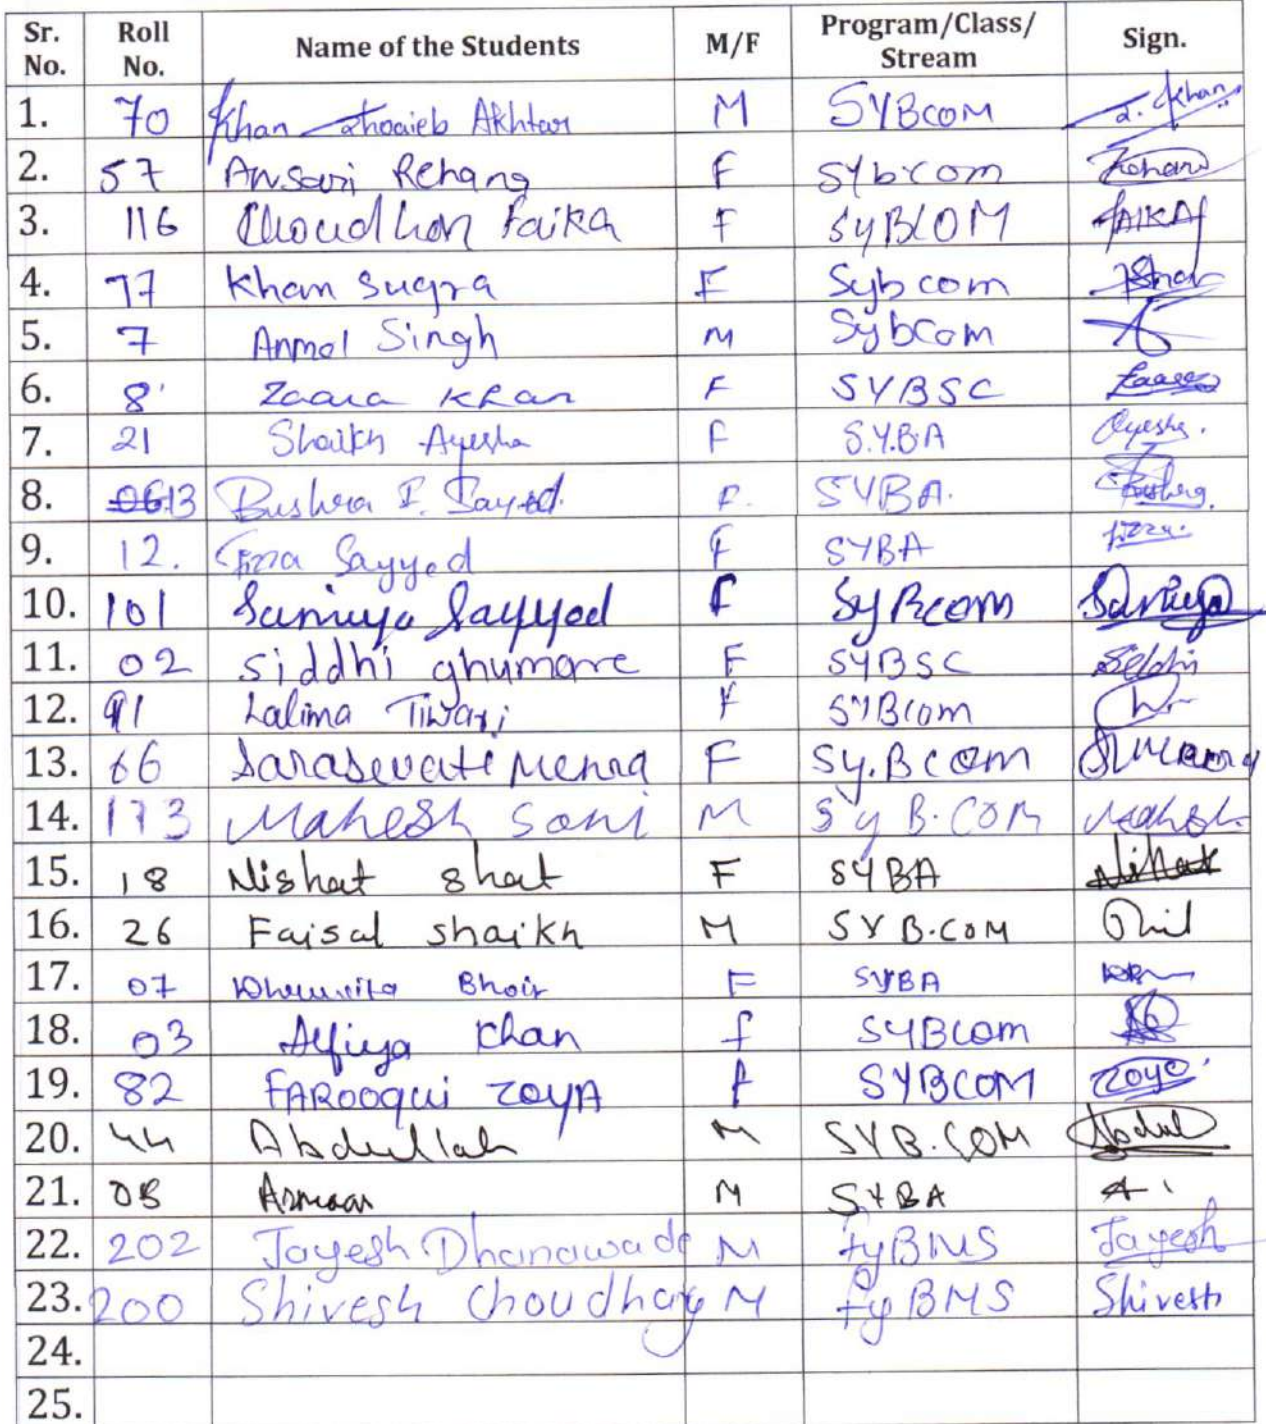 Sr. No. Roll No. Name of the Students M/F Program/Class/ Stream Sign.
1. 70 Khan Zhoaieb Akhtar M SYBCOM Z. Khan
2. 57 Ansari Rehana F SYbcom
3. 116 Choudhon Faika F SYBCOM FAIKA
4. 77 Khan Sugra F Sybcom Khan
5. 7 Anmol Singh M Sybcom
6. 8 Zaara Khan F SYBSC Zaara
7. 21 Shaikh Ayesha F S.Y.B.A Ayesha.
8. 13 Bushra I. Sayed. F. SYBA. Bushra.
9. 12. Fizza Sayyed F SYBA Fizza.
10. 101 Saniya Sayyed F SyBcom Saniya
11. 02 Siddhi ghumare F SYBSC Siddhi
12. 91 Lalima Tiwari F SYBcom
13. 66 Saraswati Mehra F Sy.Bcom
14. 113 Mahesh Soni M Sy B.COM Mahesh.
15. 18 Nishat Shat F SYBA Nishat
16. 26 Faisal Shaikh M SY B.COM
17. 07 Bhoir F SYBA
18. 03 Alfiya Khan f SYBCOM
19. 82 FAROOQUI ZOYA f SYBCOM Zoya.
20. 44 Abdullah M SYB.COM Abdul
21. 05 Armaan M SYBA A.
22. 202 Jayesh Dhanawade M FyBMS Jayesh
23. 200 Shivesh Choudhary M Fy BMS Shivesh
24.
25.